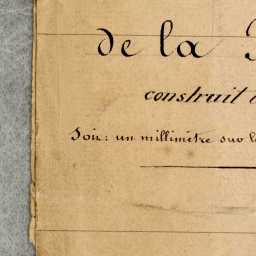 de la
construit
Soit: un millimètre sur l